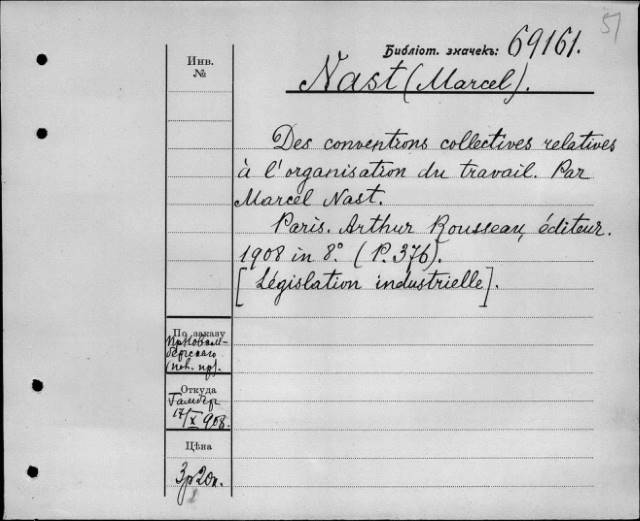 51
Библіот. значекъ: 69161.
Инв.
№
Nast (Marcel).
Des conventions collectives relatives
à l'organisation du travail. Par
Marcel Nast.
Paris. Arthur Rousseau, éditeur.
1908 in 8.° (P. 376).
[Législation industrielle].
По заказу
Откуда
17/X 908.
Цѣна
3р 20к.